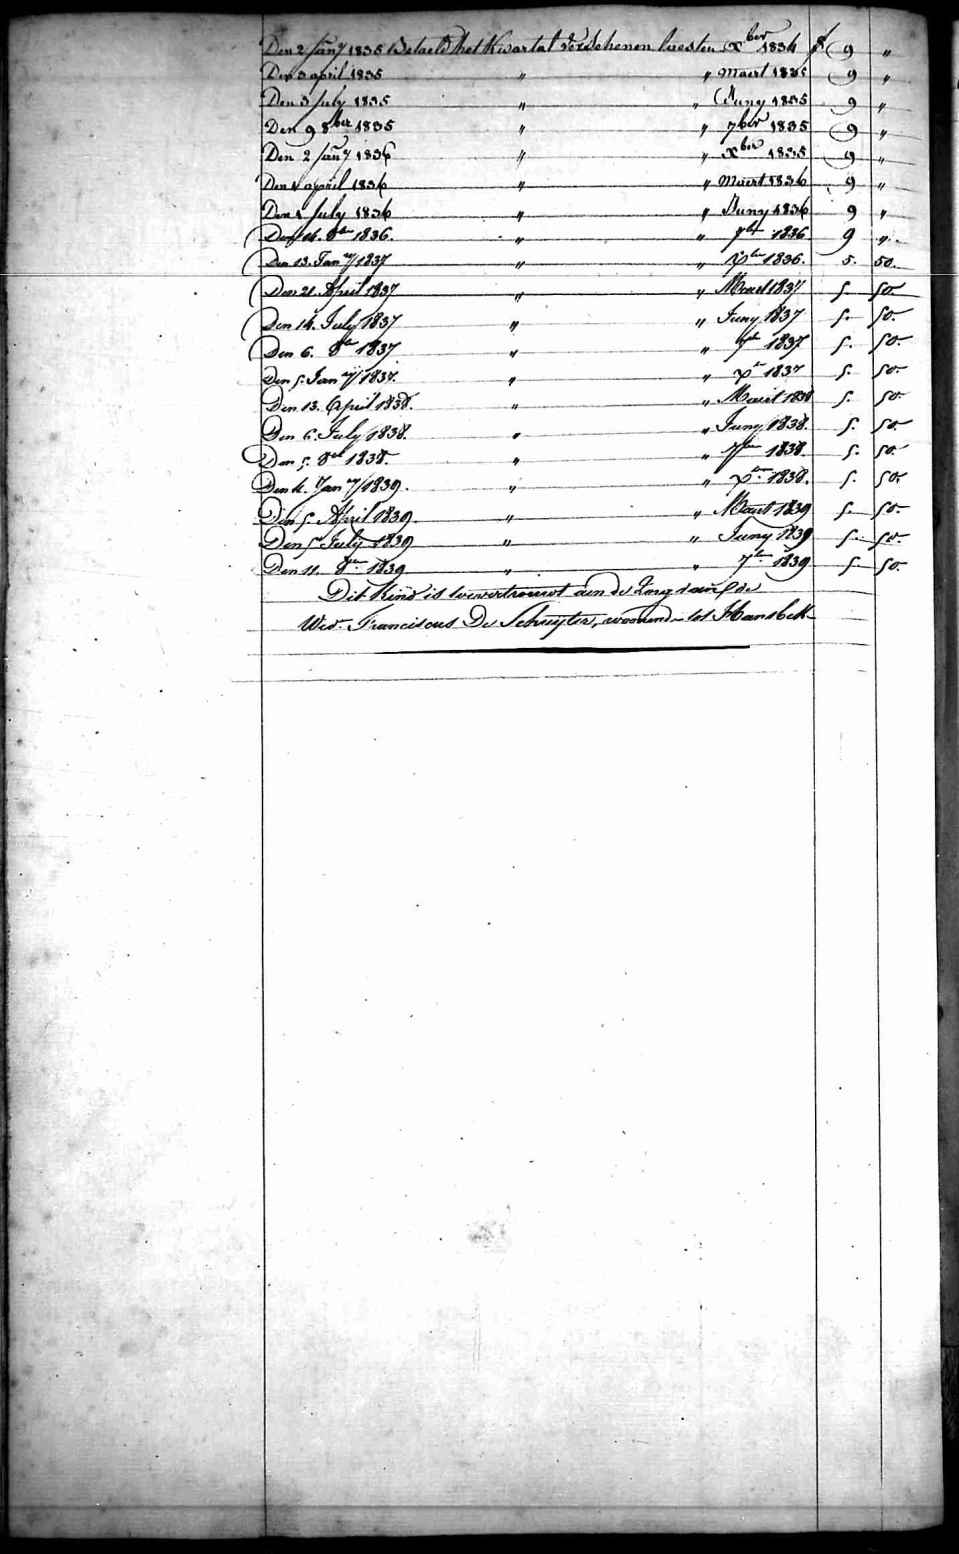 Den 2 Jany 1835 Betaeld het Kwartal verschenen laesten xber 1834 f 9 „
Den 3 april 1835 „ „ Maert 1835 9 „
Den 3 July 1835 „ „ Juny 1835 9 „
Den 9 8ber 1835 „ „ 7ber 1835 9 „
Den 2 Jany 1836 „ „ xber 1835 9 „
Den 1 april 1836 „ „ Maert 1836 9 „
Den 1 July 1836 „ „ Juny 1836 9 „
Den 14. 8br 1836. „ „ 7br 1836 9 „
Den 13. Jany 1837 „ „ xbr 1836. 5. 50.
Den 21. April 1837 „ „ Maert 1837 5. 50.
Den 14. July 1837 „ „ Juny 1837 5. 50.
Den 6. 8br 1837 „ „ 7br 1837 5. 50.
Den 5. Jany 1837. „ „ xr 1837 5. 50.
Den 13. April 1838. „ „ Maert 1838 5. 50.
Den 6. July 1838. „ „ Juny 1838. 5. 50.
Den 5. 8br 1838. „ „ 7br 1838. 5. 50.
Den 11. Jany 1839. „ „ xbr 1838. 5. 50.
Den 5. April 1839. „ „ Maert 1839 5. 50.
Den 5 July 1839 „ „ Juny 1839 5. 50.
Den 11. 8br 1839 „ „ 7br 1839 5. 50.
Dit Kind is toevertrouwt aen de Zorg van de
Wed. Franciscus De Schuyter, woonend tot Hansbek